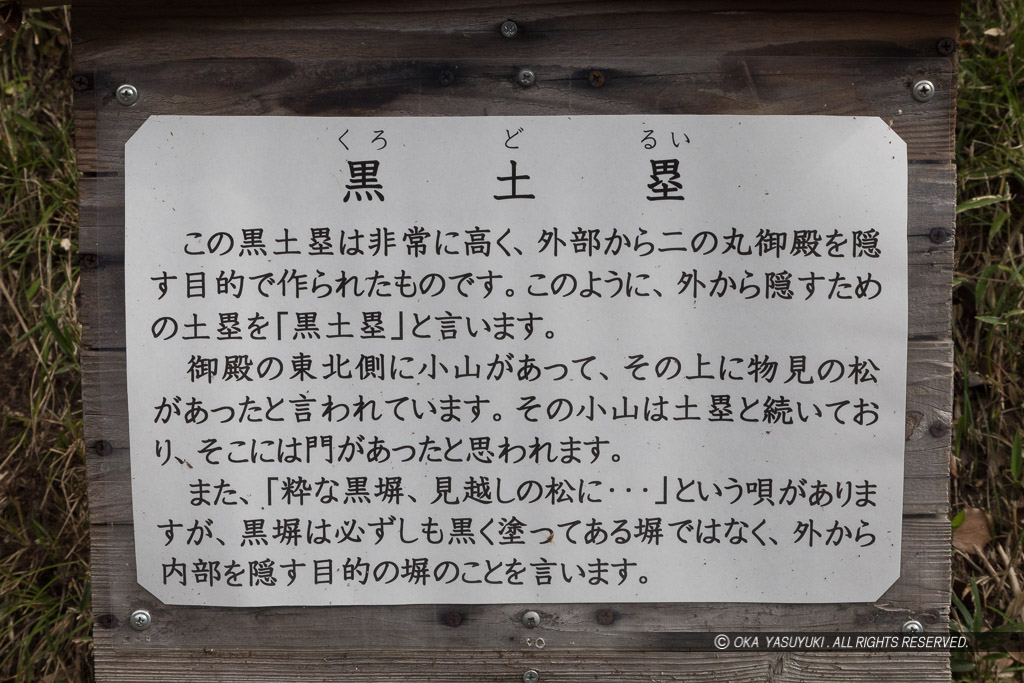 くろ ど るい
黒 土 塁
この黒土塁は非常に高く、外部から二の丸御殿を隠
す目的で作られたものです。このように、外から隠すため
の土塁を「黒土塁」と言います。
御殿の東北側に小山があって、その上に物見の松
があったと言われています。その小山は土塁と続いてお
り、そこには門があったと思われます。
また、「粋な黒塀、見越しの松に・・・」という唄がありま
すが、黒塀は必ずしも黒く塗ってある塀ではなく、外から
内部を隠す目的の塀のことを言います。
© OKA YASUYUKI . ALL RIGHTS RESERVED.